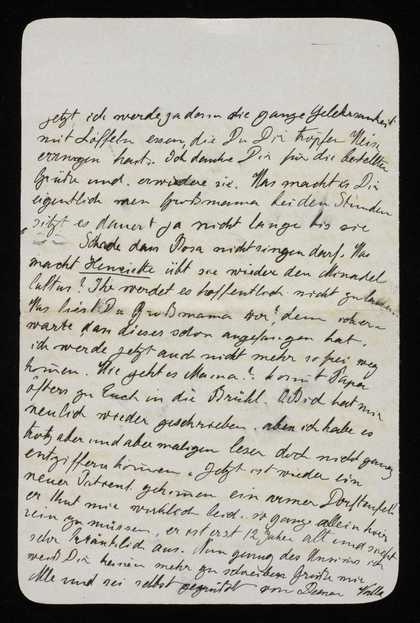 jetzt, ich werde ja dann die ganze Gelehrsamkeit
mit Löffeln essen, die Du Dir tropfen Weise
errungen hast. Ich danke Dir für die bestellten
Grüße und erwiedere sie. Was macht es Dir
eigentlich wenn Großmama bei den Stunden
sitzt es dauert ja nicht lange bis sie
Schade dass Rosa nicht singen darf. Was
macht Henriette übt sie wieder den
cultus? Ihr werdet es hoffentlich nicht
Was liest Du Großmama vor? denn ich er-
warte dass dieses schon angefangen hat.
ich werde jetzt auch nicht mehr so frei weg
können. Wie geht es Mama? kommt Papa
öfters zu Euch in die Brühl. hat mir
neulich wieder geschrieben, aben ich habe es
trotz aber und abermaligen lesen doch nicht ganz
entziffern können. Jetzt ist wieder ein
neuer Patient gekommen ein armer
er thut mir wirklich leid. so ganz allein hier
sein zu müssen, er ist erst 12 Jahre alt und sieht
sehr kränklich aus. Nun genug des Unsinns ich
weiß Dir keinen mehr zu schreiben Grüße mir
Alle und sei selbst gegrüßt von Deiner